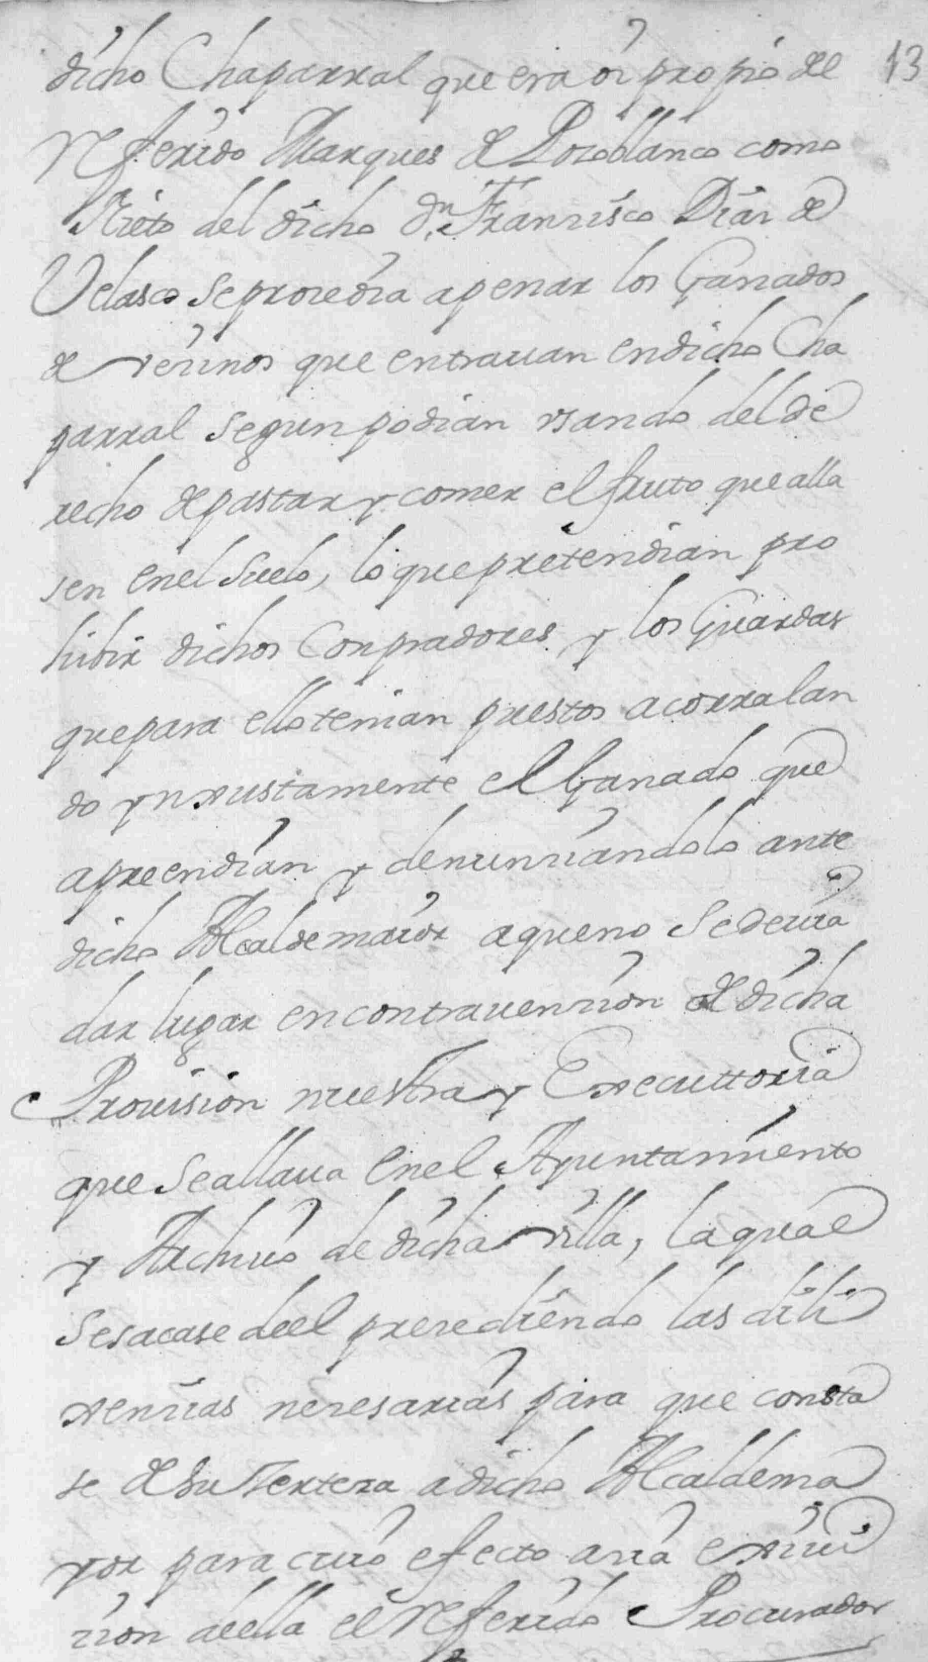 dicho Chaparral que era oi propio de 13
referido Marques de Pozoblanco como
Nieto del dicho Dn. Francisco Diaz de
Velasco se prozedia apenar los Ganados
de vezinos que entrauan en dicho Cha
parral segun podian vsando del de
recho de pastar y comer el fruto que alla
sen enel suelo, lo que pretendian pro
hibir dichos Conpradores y los Guardas
que para ello tenian puestos acorralan
do ynxustamente el Ganado que
apreendian y denunziandolo ante
dicho Alcalde maior aqueno se deuia
dar lugar en contrauenzion de dicha
Prouision nuestra y Executtoria
que se allaua enel Ayuntamiento
y Archiuo de dicha villa, la qual
se sacase deel prezediendo las dili
xenzias nezesarias para que consta
se de su zerteza a dicho Alcalde ma
yor para cuio efecto azia exsiui
zion della el referido Procurador